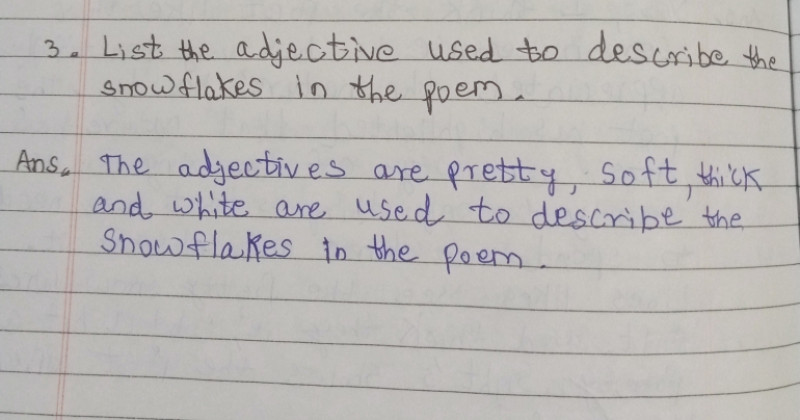 3. List the adjective used to describe the
snowflakes in the poem.
Ans. The adjectives are pretty, soft, thick
and white are used to describe the
snowflakes in the poem.